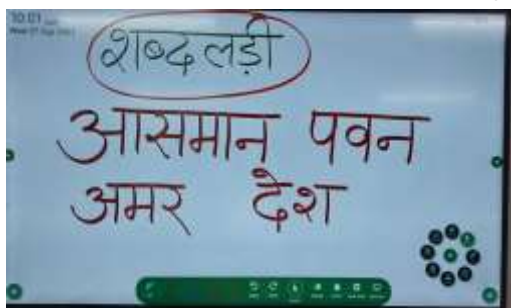 10:01
शब्द लड़ी
आसमान पवन
अमर देश